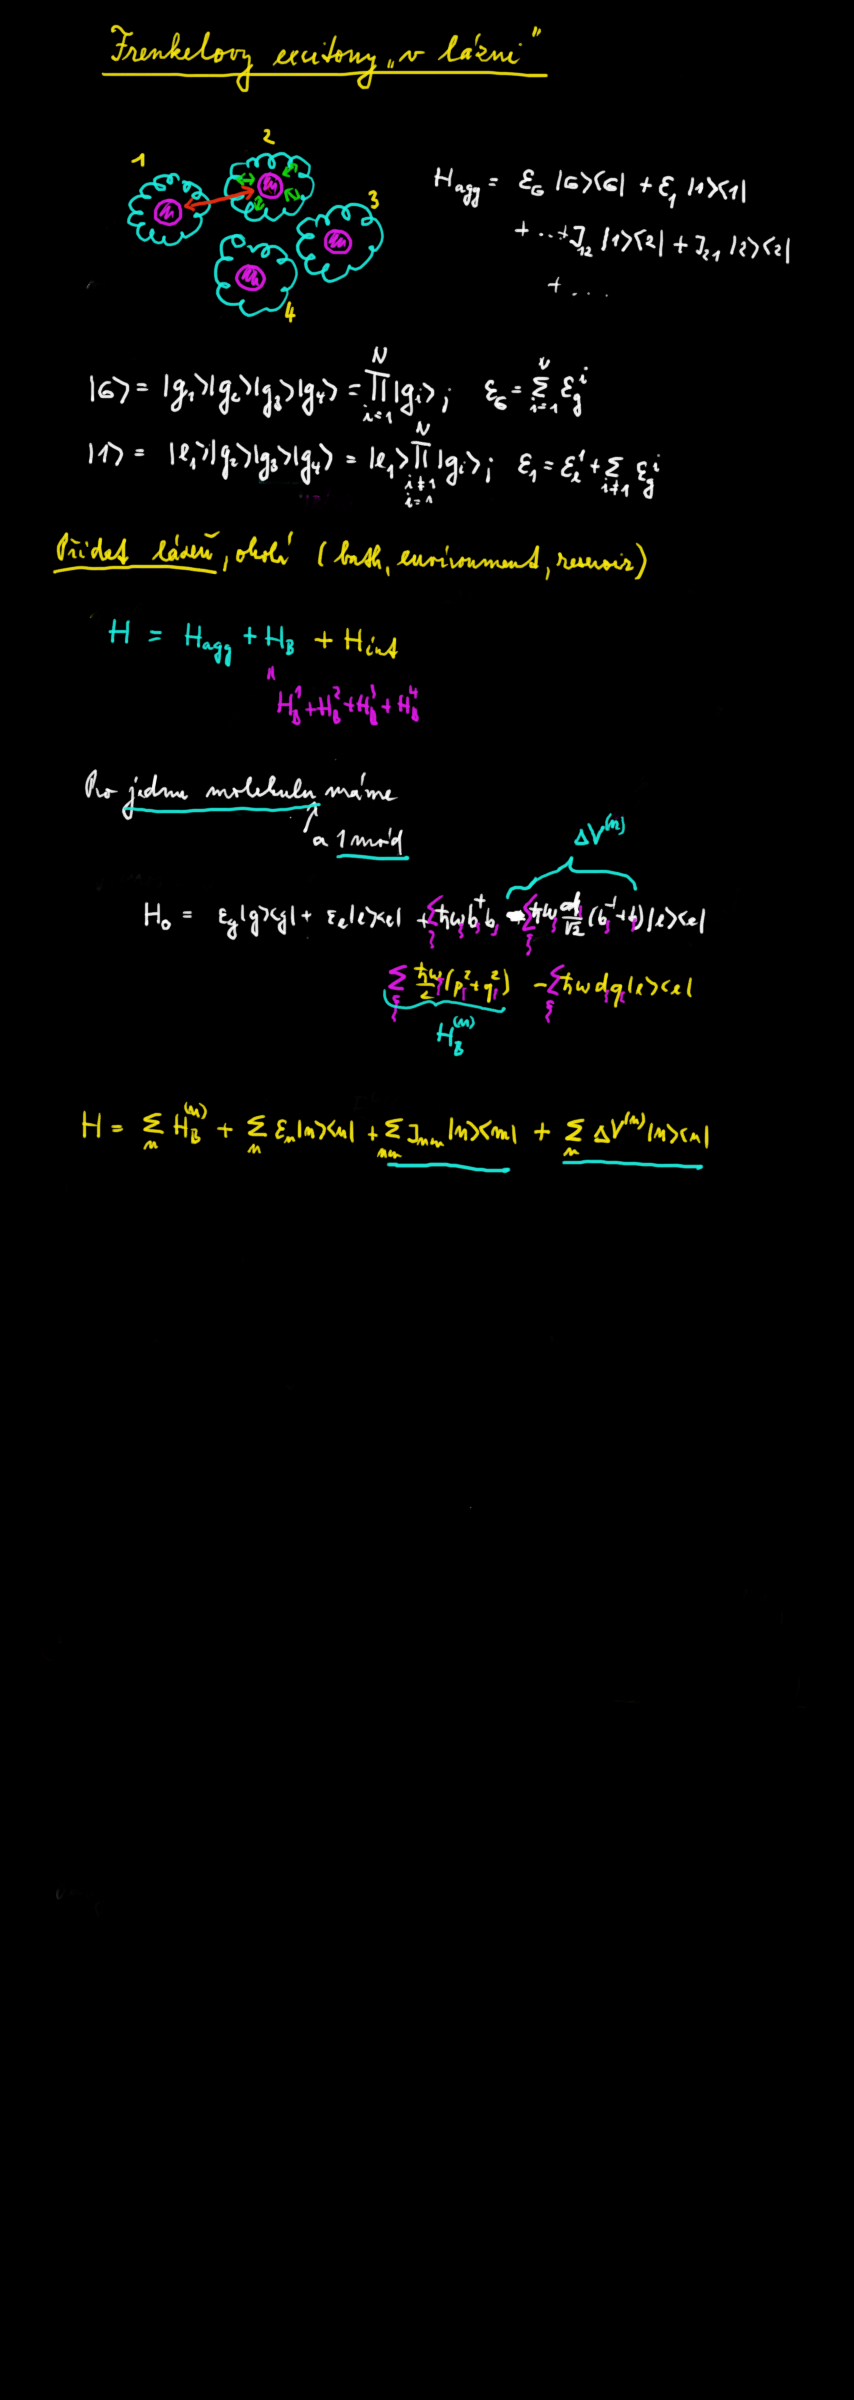 Frenkelovy excitony „v lázni“
1
2
3
4
H_agg = ε_G |G><G| + ε_1 |1><1|
+ ... + J_12 |1><2| + J_21 |2><2|
+ ...
|G> = |g_1>|g_2>|g_3>|g_4> = ∏_{i=1}^{N} |g_i> ; ε_G = Σ_{i=1}^{N} ε_g^i
|1> = |e_1>|g_2>|g_3>|g_4> = |e_1> ∏_{i≠1, i=1}^{N} |g_i> ; ε_1 = ε_e^1 + Σ_{i≠1} ε_g^i
Přidat lázeň, okolí (bath, environment, reservoir)
H = H_agg + H_B + H_int
H_B^1 + H_B^2 + H_B^3 + H_B^4
Pro jednu molekulu máme
a 1 mód
ΔV^(n)
H_0 = ε_g |g><g| + ε_e |e><e| + Σ_ξ ħω_ξ b_ξ^+ b_ξ - Σ_ξ ħω_ξ d_ξ/√2 (b_ξ^+ + b_ξ) |e><e|
Σ_ξ ħω_ξ/2 (p_ξ^2 + q_ξ^2) - Σ_ξ ħω d_ξ q_ξ |e><e|
H_B^(n)
H = Σ_n H_B^(n) + Σ_n ε_n |n><n| + Σ_nm J_nm |n><m| + Σ_n ΔV^(n) |n><n|